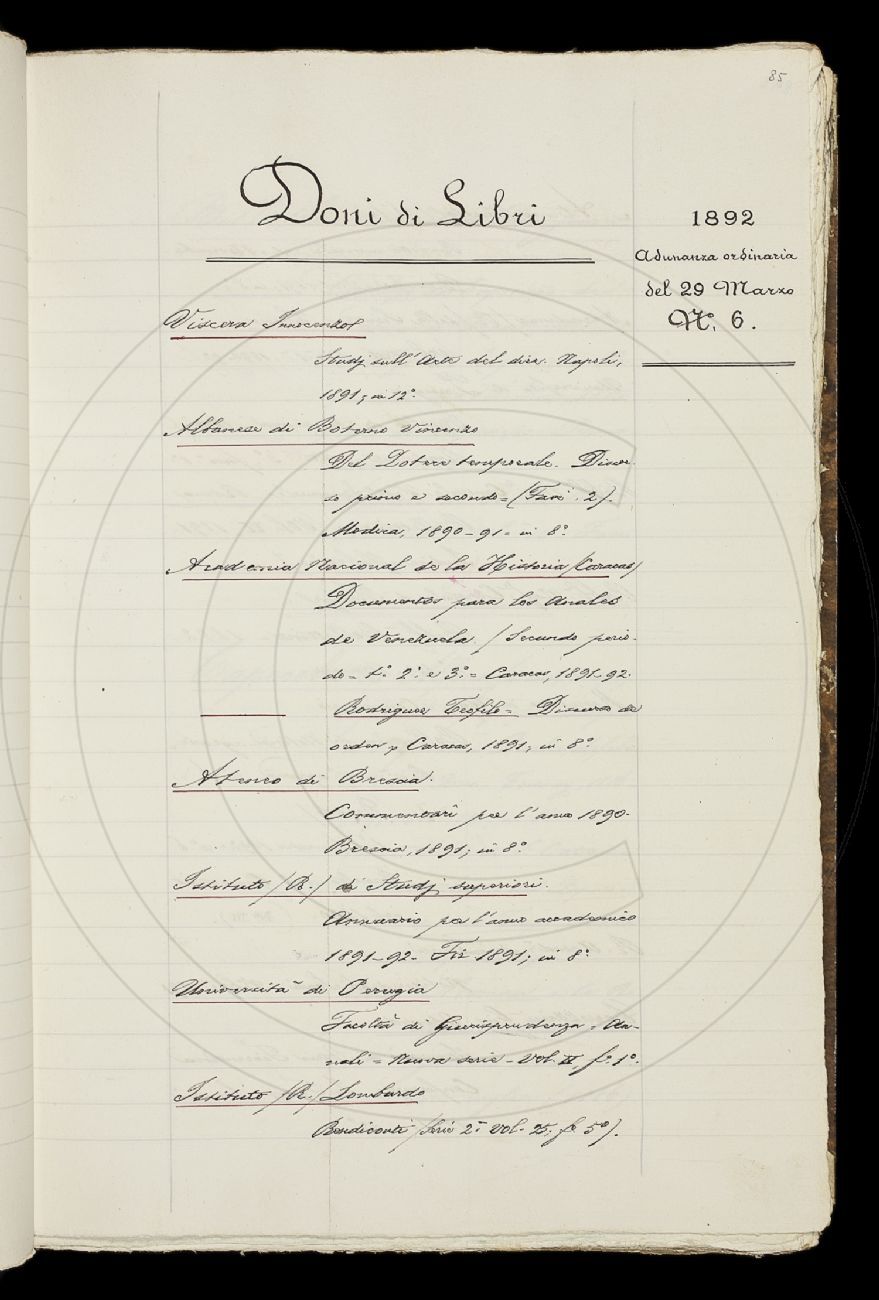 85
Doni di Libri
1892
Adunanza ordinaria
del 29 Marzo
N.° 6.
Viscera Innocenzo
Studj sull'Arte del dire. Napoli,
1891; in 12°.
Albanese di Boterno Vincenzo
Del Potere temporale. Discor-
so primo e secondo = (Fasci. 2).
Modica, 1890-91 = in 8°.
Academia Nacional de la Historia (Caracas)
Documentos para los Anales
de Venezuela (Secundo perio-
do = 1.° 2.° e 3.° = Caracas, 1891-92.
Rodriguez Teofilo = Discurso de
orden = Caracas, 1891; in 8°.
Ateneo di Brescia.
Commentari per l'anno 1890.
Brescia, 1891; in 8°.
Istituto (R.) di Studj superiori.
Annuario per l'anno accademico
1891-92. Fir. 1891; in 8°.
Università di Perugia
Facoltà di Giurisprudenza = An-
nali = Nuova serie = Vol. II, f.° 1°.
Istituto (R.) Lombardo
Rendiconti (Serie 2.ª Vol. 25; f.° 5°).